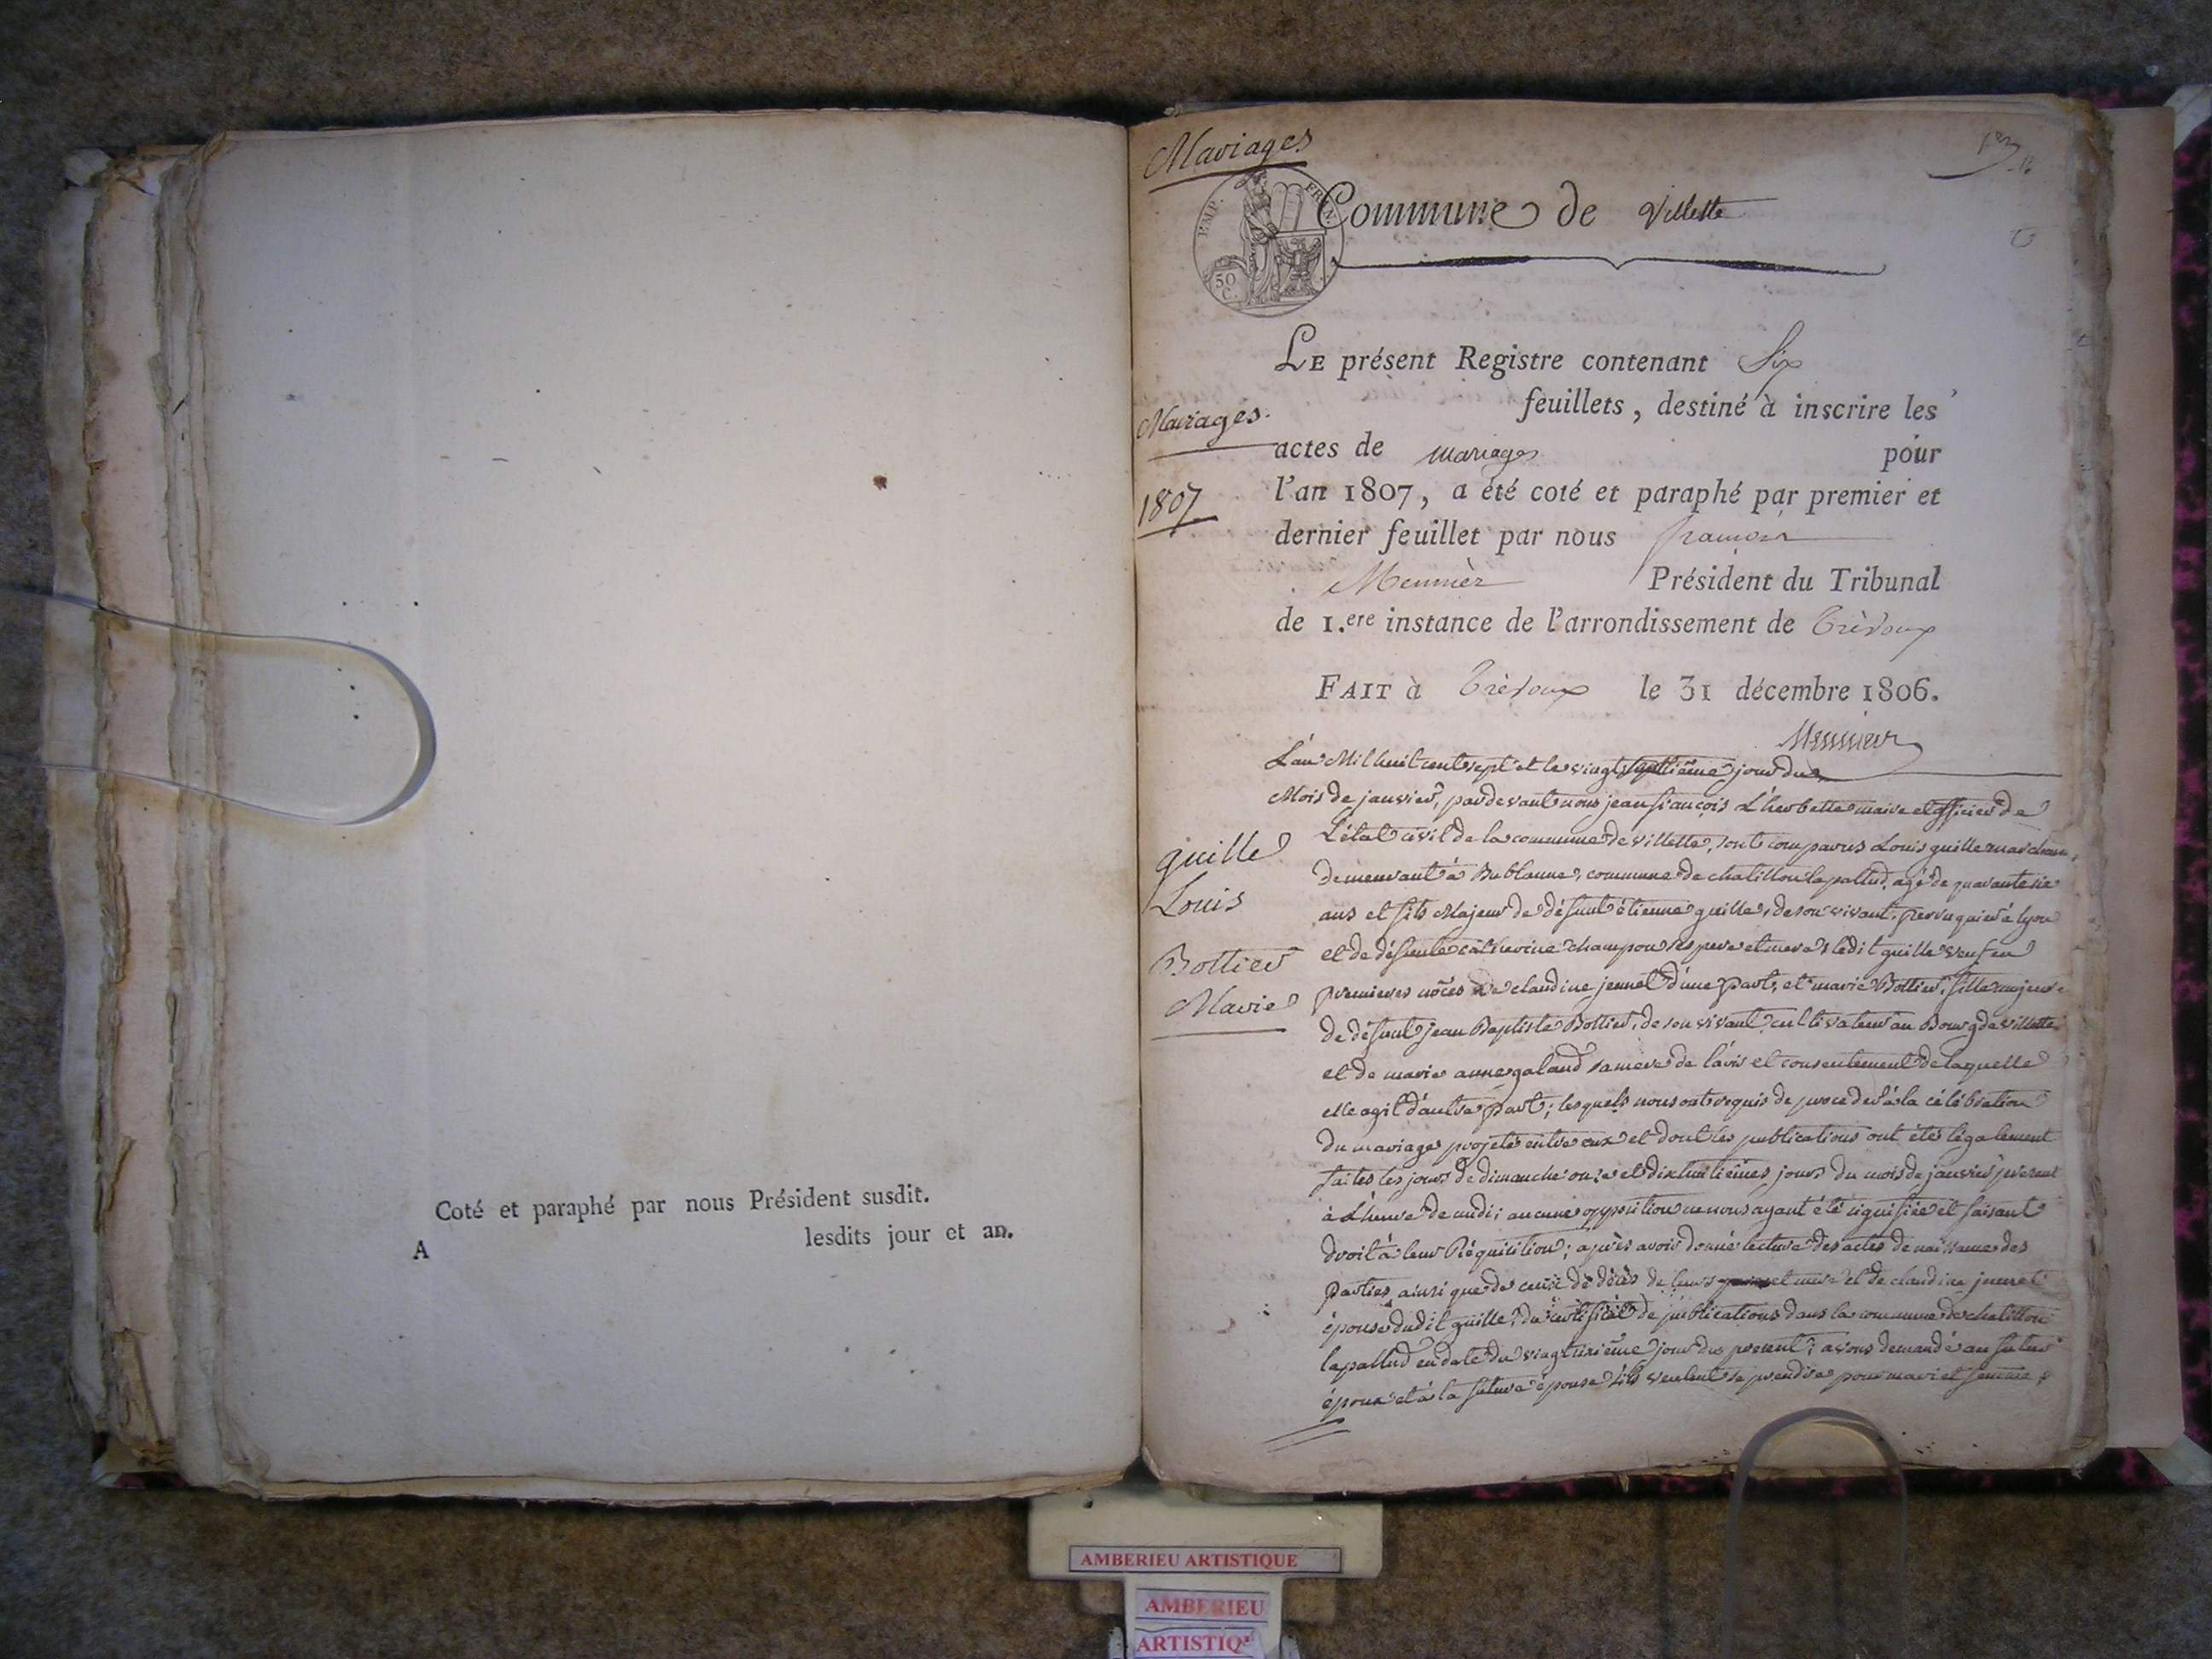 Coté et paraphé par nous Président susdit.
A lesdits jour et an.
Mariages
1er
EMP. FRAN.
50 C.
Commune de Villette
LE présent Registre contenant Six
feuillets, destiné à inscrire les
Mariages.
actes de mariages pour
1807
l'an 1807, a été coté et paraphé par premier et
dernier feuillet par nous francois
Meunier Président du Tribunal
de 1.ere instance de l'arrondissement de Trévoux
FAIT à Trévoux le 31 décembre 1806.
Meunier
L'an Mil huit cent sept et le vingt septième jour du
Mois de janvier, pardevant nous jean françois L'herbette maire et officier de
L'état civil de la commune de villette, sont comparus Louis guille marchand,
demeurant à Bublanne, commune de chatillon lapallud, agé de quarante six
ans et fils Majeur de défunt étienne guille, de son vivant, perruquier à lyon
et de défunte catherine champon ses pere et mere, ledit guille veuf en
premieres nôces de claudine jennet d'une part, et marie Bottier, fille majeure
de défunt jean Baptiste Bottier, de son vivant cultivateur au Bourg de villette
et de marie anne galand sa mere de l'avis et consentement de laquelle
elle agit d'autre part; lesquels nous ont requis de proceder à la célébration
du mariage projeté entre eux et dont les publications ont été légalement
faites les jours de dimanche onze et dix huitièmes jours du mois de janvier present
à L'heure de midi; aucune opposition ne nous ayant été signifiée et faisant
droit à leur Réquisition; après avoir donné lecture des actes de naissance des
Parties ainsi que de ceux de décès de leurs et mere et de claudine jennet
épouse dudit guille, du certificat de publications dans la commune de chatillon
lapallud en date du vingt sixième jour du present; avons demandé au futur
époux et à la future épouse s'ils veulent se prendre pour mari et femme;
guille
Louis
Bottier
Marie
AMBERIEU ARTISTIQUE
AMBERIEU
ARTISTIQ